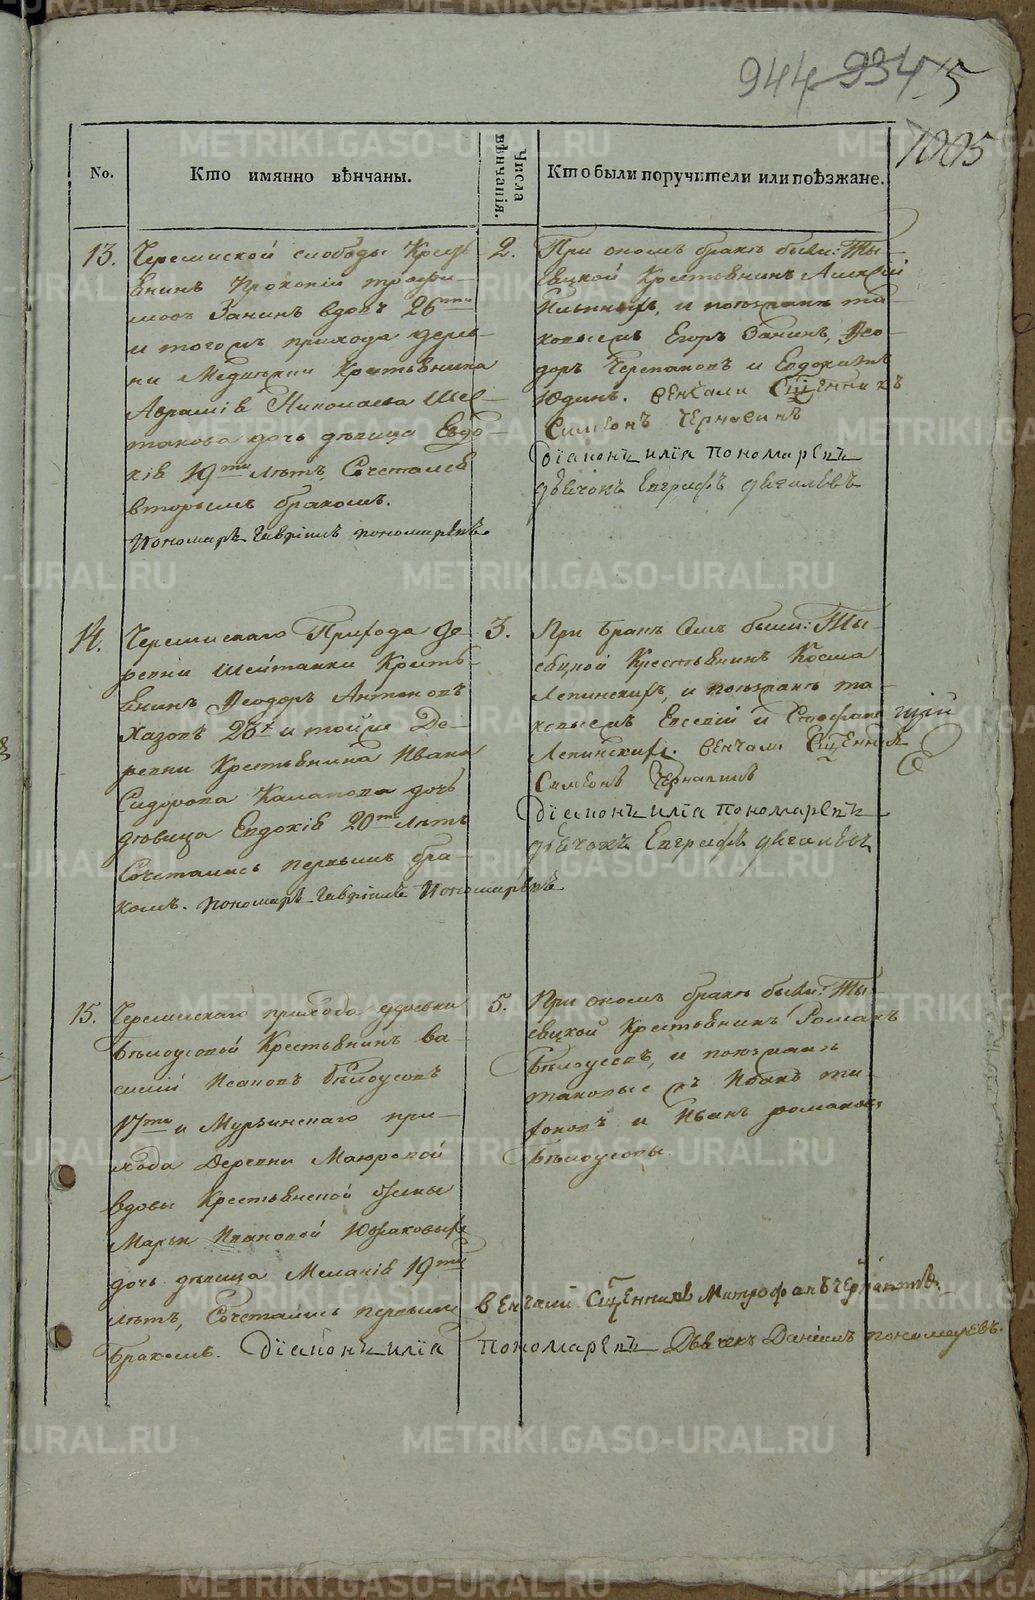 944 934 5
1005
No.
Кто имянно вѣнчаны.
Числа вѣнчанія.
Кто были поручители или поѣзжане.
13.
Черемиской слободы Кресть
янинъ Прокопій Трофи
мовъ Занинъ вдовъ 26ти
и тогожъ прихода дерев-
ни Крестьянина
Аврамія Николаева
дочь дѣвица Евдо
кія 19ти лѣтъ, Сочетался
вторымъ бракомъ.
Пономарь Гавріилъ Пономаревъ.
2.
При ономъ бракѣ были: Ты-
сяцкой Крестьянинъ Алексѣй
и поѣзжанѣ та-
ковыежъ Егоръ Занинъ, Ѳео-
доръ Черепановъ и Евдокимъ
Юдинъ. венчали Сщенникъ
Симеонъ Чернавинъ
Діаконъ илїа Пономаревъ
дьячокъ Евграфъ
14.
Черемискаго Прихода де-
ревни Шейтанки Кресть-
янинъ Ѳеодоръ Антоновъ
Хазовъ 23х и тойже Де-
ревни Крестьянина Ивана
Сидорова дочь
дѣвица Евдокія 20ти лѣтъ
Сочетались первымъ бра-
комъ. Пономарь Гавріилъ Пономаревъ
3.
При Бракѣ Семъ были: Ты-
сяцкой Крестьянинъ Косма
Лепинскихъ, и поѣзжанѣ та-
ковыежъ Евсевій и
Лепинскихъ. венчали Сщенникъ
Симеонъ Чернавинъ
Діаконъ илїа Пономаревъ
дьячокъ Евграфъ
15.
Черемискаго прихода деревни
Бѣлоусовой Крестьянинъ Ва-
силій Исаковъ Бѣлоусовъ
17ти и Мурзинскаго при-
хода Деревни Маюровой
вдовы Крестьянской жены
Марьи Ивановой Южаковыхъ
дочь дѣвица Меланія 19ти
лѣтъ, Сочетались первымъ
Бракомъ.
5.
При ономъ бракѣ были: Ты-
сяцкой Крестьянинъ Романъ
Бѣлоусовъ, и поѣзжанѣ
таковые жъ
и Иванъ Романовъ
Бѣлоусовы
венчали Сщенникъ Митрофанъ Чернавинъ.
Діаконъ илїа Пономаревъ Дьячекъ Данiилъ Пономаревъ.
METRIKI.GASO-URAL.RU